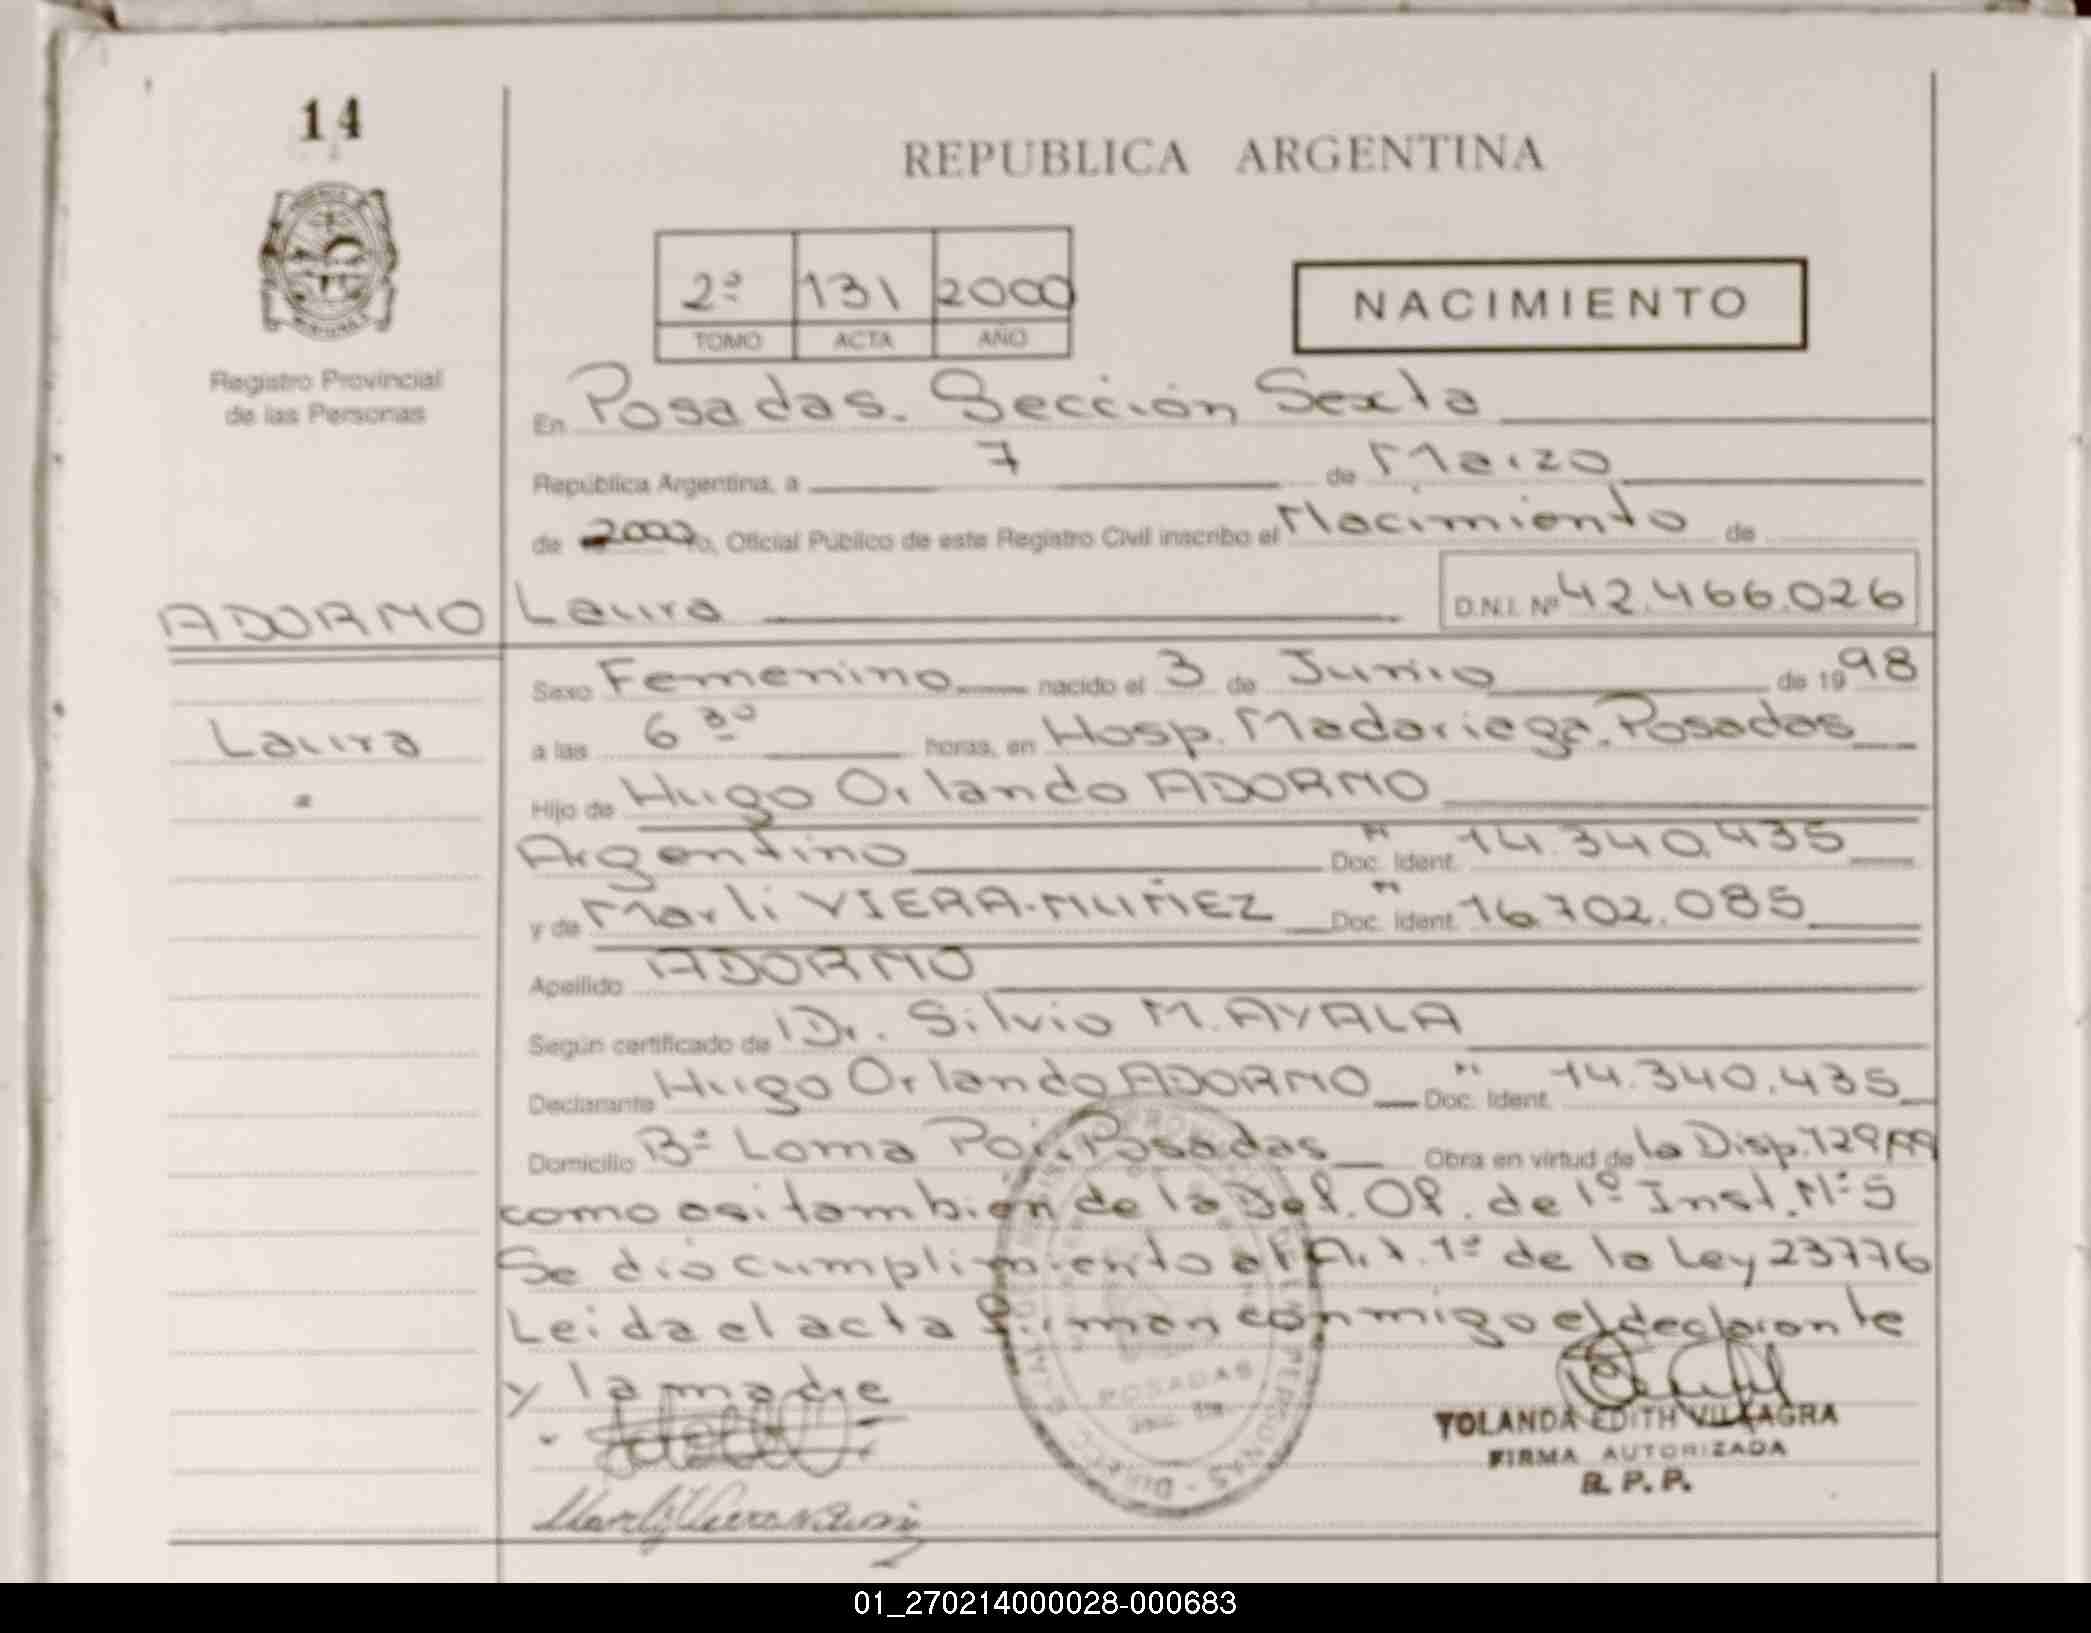 14
REPUBLICA ARGENTINA
2º 131 2000
TOMO ACTA AÑO
NACIMIENTO
Registro Provincial
de las Personas
En Posadas. Sección Sexta
República Argentina, a 7 de Marzo
de 2000 yo, Oficial Público de este Registro Civil inscribo el Nacimiento de
ADORNO Laura D.N.I. Nº 42.466.026
Sexo Femenino nacido el 3 de Junio de 1998
Laura
a las 6 30 horas, en Hosp. Madariaga. Posadas
Hijo de Hugo Orlando ADORNO
Argentino Doc. Ident. N 14.340.435
y de Marli VIERA-NUÑEZ Doc. Ident. N 16.702.085
Apellido ADORNO
Según certificado de Dr. Silvio M. AYALA
Declarante Hugo Orlando ADORNO Doc. Ident. N 14.340.435
Domicilio Bº Loma Poi. Posadas Obra en virtud de la Disp. 729/99
como asi tambien de la Def. Of. de 1º Inst. Nº 5
Se dió cumplimiento al Art. 1º de la Ley 23776
Leida el acta firman conmigo el declarante
y la madre
POSADAS
YOLANDA EDITH VILLAGRA
FIRMA AUTORIZADA
R. P. P.
01_270214000028-000683